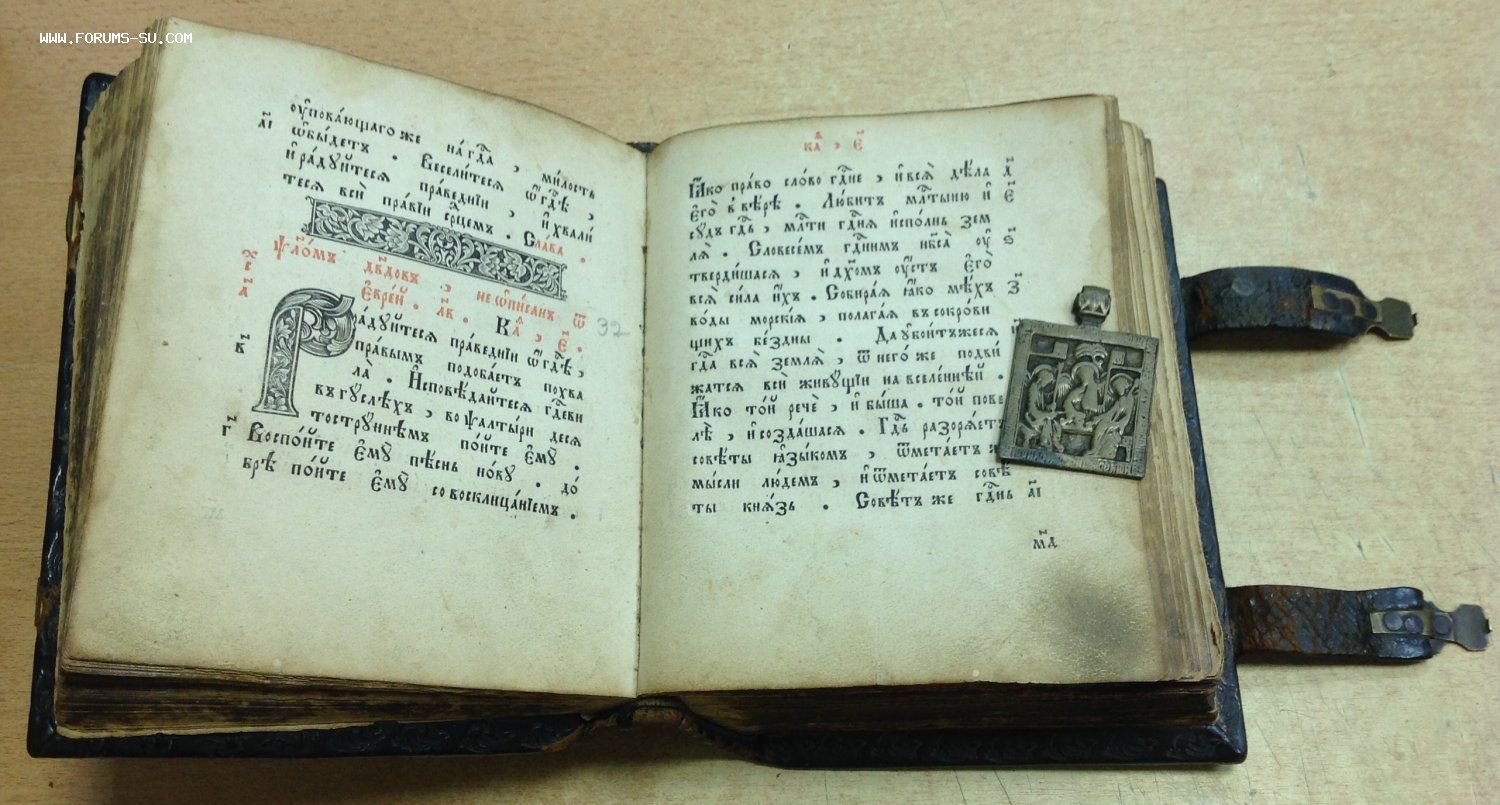 www.forums-su.com
оу҆пова́ющагоже на́ гд҇а , ми́лость
а҃і ѡ҆бы́детъ . Весели́теся ѡ҆ гд҇ѣ ,
и҆ ра́дуйтеся пра́веднїи , и҆ хвали́
теся всѝ пра́вїи ср҇цемъ . Сла́ва .
ѱало́мъ дв҃довъ , не ѡ҆пи́санъ ѿ
є҆вре́й . л҃в . Ка҇ , є҃ .
32
Ра́дуйтеся пра́веднїи ѡ҆ гд҇ѣ ,
в҃ пра́вымъ подоба́етъ похва
ла̀ . И҆сповѣ́дайтеся гд҇еви
въ гу́слехъ , во ѱалты́ри деся
тостру́ннѣмъ по́йте є҆мꙋ̀ .
г҃ Воспо́йте є҆мꙋ̀ пѣ́снь но́ву . до́
брѣ по́йте є҆мꙋ̀ со восклица́нїемъ .
ка҇ , є҃
Ꙗ҆́ко пра́во сло́во гд҇не , и҆ всѧ̀ дѣ́ла д҃
є҆го̀ в вѣ́рѣ . Лю́битъ мл҇тыню и҆ є҃
су́дъ гд҇ь , мл҇ти гд҇ня и҆спо́лнь зем
ля̀ . Словесе́мъ гд҇нимъ нб҇са̀ оу҆ ѕ҃
тверди́шася , и҆ дх҃омъ оу҆́стъ є҆го̀
всѧ̀ си́ла и҆́хъ . Собира́я ꙗ҆́ко мѣ́хъ з҃
во́ды морскі́я , полага́я въ сокро́ви
щихъ бе́здны . Да оу҆бои́тъжеся и҃
гд҇а всѧ̀ земля̀ , ѿ него́ же подви́
жатся всѝ живу́щїи на вселе́ннѣй .
Ꙗ҆́ко то́й речѐ , и҆ бы́ша . то́й пове
лѣ̀ , и҆ созда́шася . Гд҇ь разоря́етъ
совѣ́ты ꙗ҆зы́комъ , ѿмета́етъ
мы́сли лю́демъ , и҆ ѿмета́етъ совѣ́
ты кня́зь . Совѣ́тъ же гд҇нь а҃і
м҃д